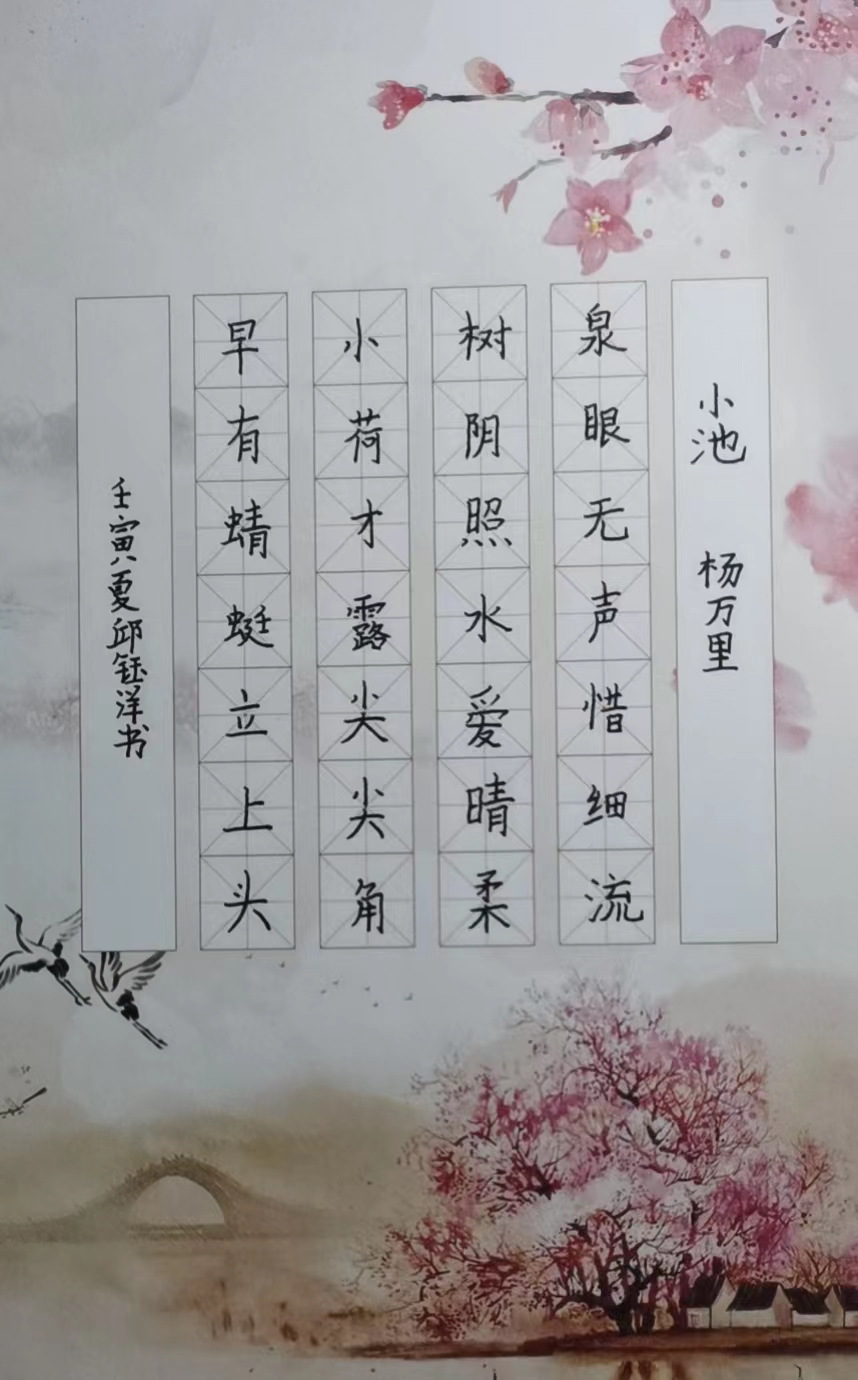 小池 杨万里
泉眼无声惜细流
树阴照水爱晴柔
小荷才露尖尖角
早有蜻蜓立上头
壬寅夏邱钰洋书